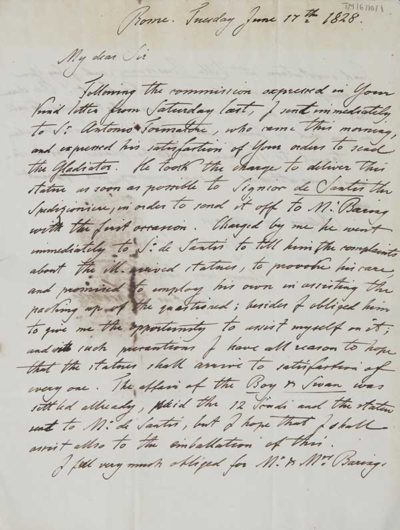 Rome. Tuesday June 17th 1828.
My dear Sir
Following the commission expressed in Your
kind letter from Saturday last, I sent immediately
to Sr. Antonio Formatore, who came this morning,
and expressed his satisfaction of Your orders to send
the Gladiator. He took the charge to deliver this
statue as soon as possible to Signior de Santis the
Spedizioniere, in order to send it off to Mr. Baring
with the first occasion. Charged by me he went
immediately to Sr. de Santis to tell him the complaints
about the ill arrived statues, to provoke his care,
and promised to employ his own in assisting the
packing up of the questioned; besides I obliged him
to give me the opportunity to assist myself on it;
and with such precautions I have all reason to hope
that the statues shall arrive to satisfaction of
every one. The affair of the Boy & Swan was
settled allready, paid the 12 Scudi and the statue
sent to Mr. de Santis, but I hope that I shall
assist allso to the emballation of this.
I fell very much obliged for Mr. & Mrs Baring